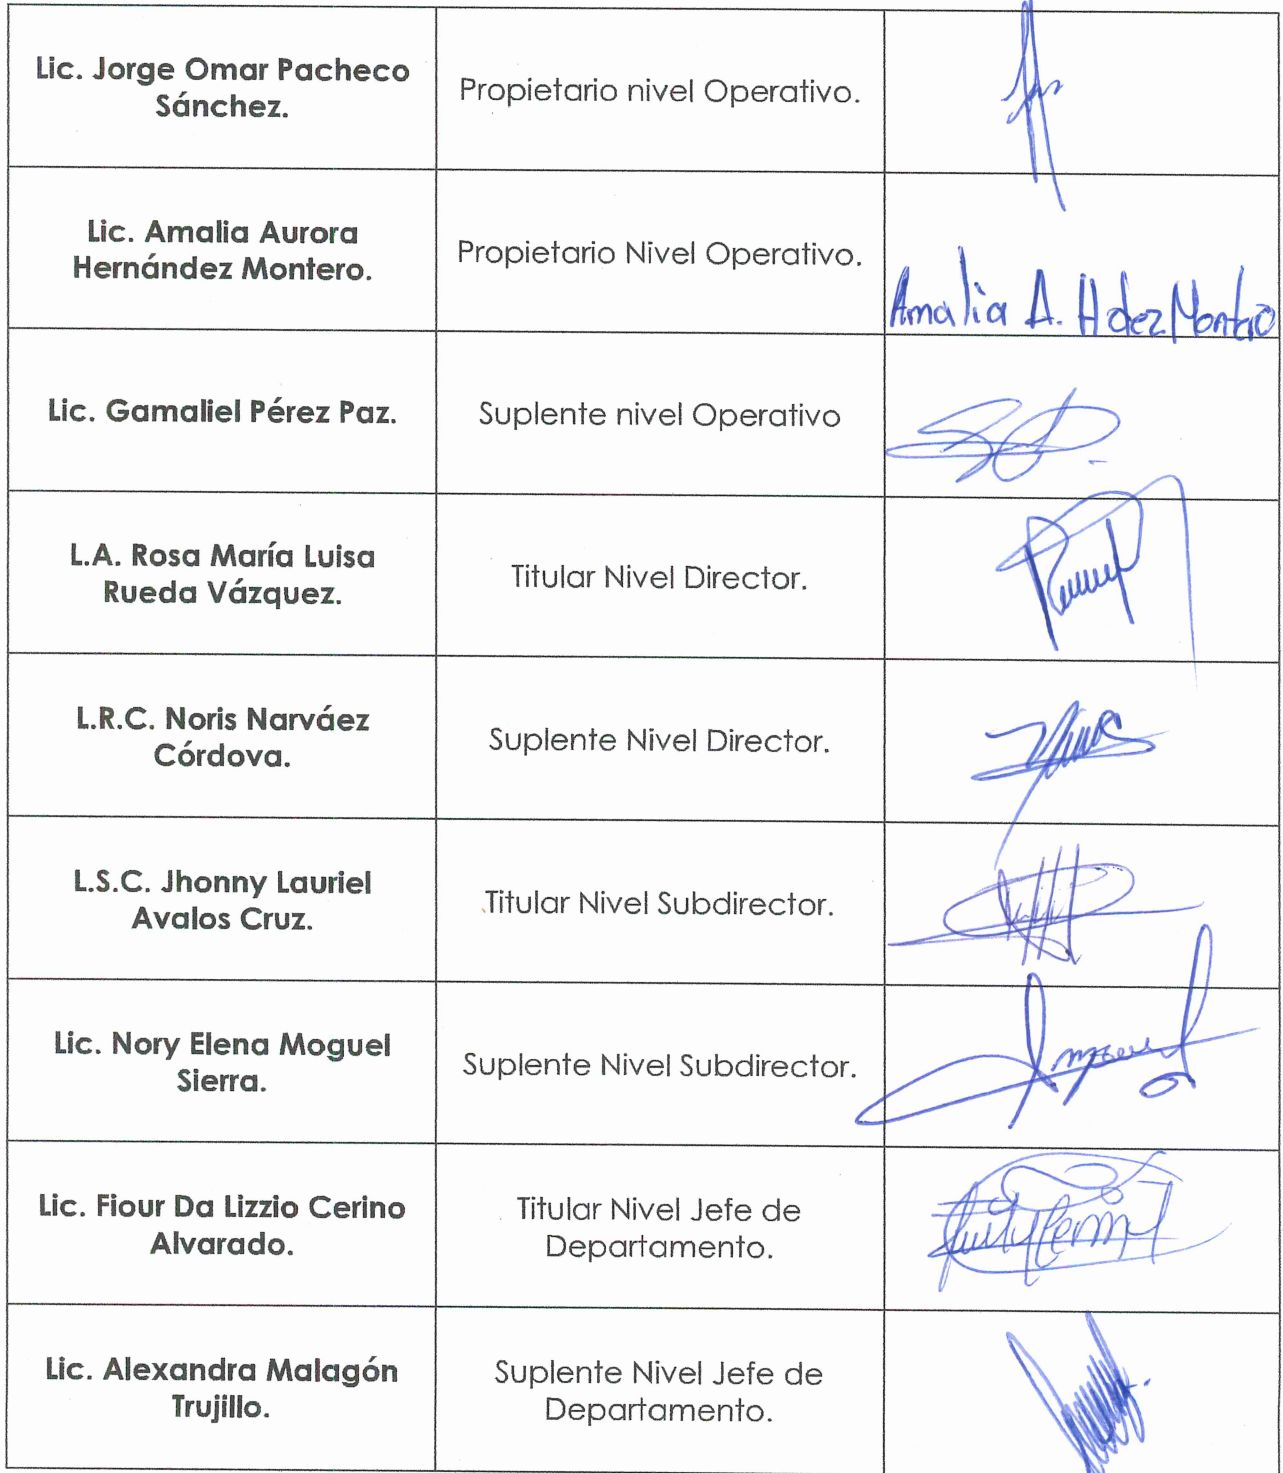 Lic. Jorge Omar Pacheco
Sánchez.
Propietario nivel Operativo.
Lic. Amalia Aurora
Hernández Montero.
Propietario Nivel Operativo.
Amalia A. Hdez Montero
Lic. Gamaliel Pérez Paz.
Suplente nivel Operativo
L.A. Rosa María Luisa
Rueda Vázquez.
Titular Nivel Director.
L.R.C. Noris Narváez
Córdova.
Suplente Nivel Director.
L.S.C. Jhonny Lauriel
Avalos Cruz.
Titular Nivel Subdirector.
Lic. Nory Elena Moguel
Sierra.
Suplente Nivel Subdirector.
Lic. Fiour Da Lizzio Cerino
Alvarado.
Titular Nivel Jefe de
Departamento.
Lic. Alexandra Malagón
Trujillo.
Suplente Nivel Jefe de
Departamento.